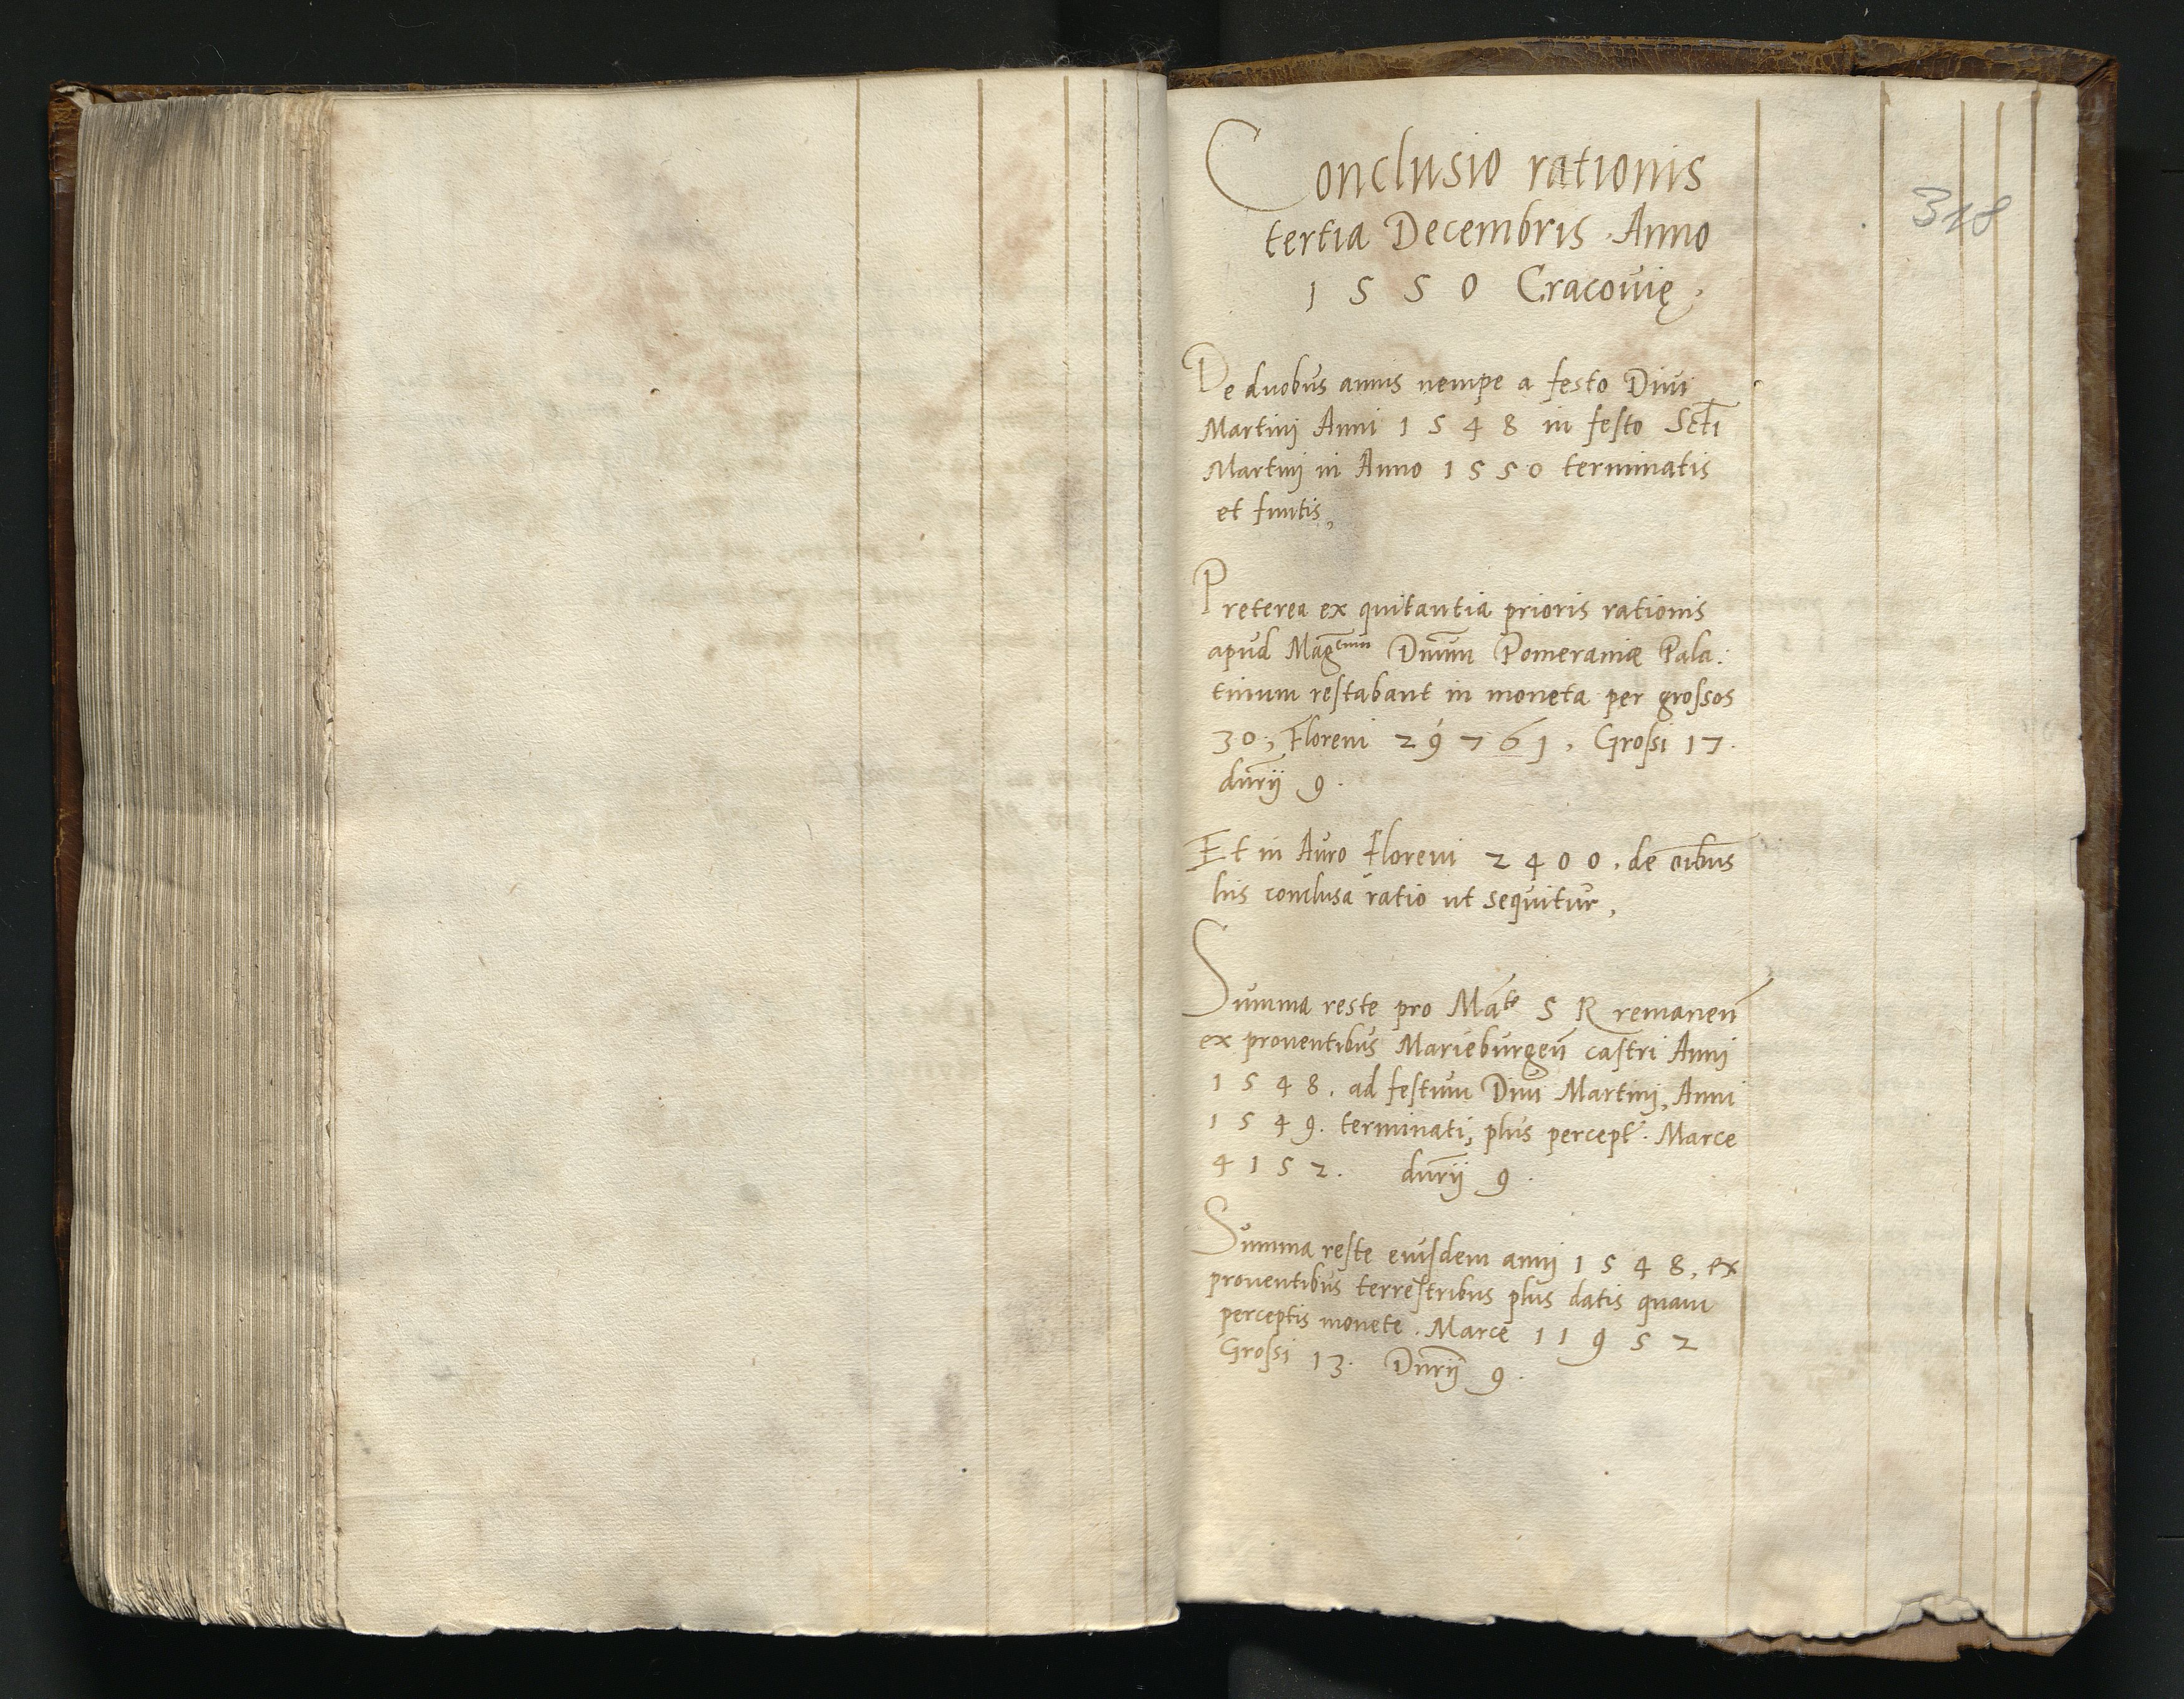 318
Conclusio rationis
tertia Decembris Anno
1550 Cracovię.
De duobus annis nempe a festo Divi
Martinj Anni 1548 in festo Scti
Martinj in Anno 1550 terminatis
et finitis,
Preterea ex quitantia prioris rationis
apud Mag̅cum Dnum Pomeraniæ Pala:
tinum restabant in moneta per grossos
30; Floreni 29761, Grossi 17.
dnrij 9.
Et in Auro Floreni 2400. de oibus
his conclusa ratio ut sequitur,
Summa reste pro Mate S R remanen̄
ex proventibus Marieburgen̄ castri Annj
1548. ad festum Divi Martinj, Anni
1549. terminati, plus percept. Marce
4152. dnrij 9.
Summa reste eiusdem annj 1548, ex
proventibus terrestribus plus datis quam
perceptis monete. Marce 11952
Grossi 13. Dnrij 9.